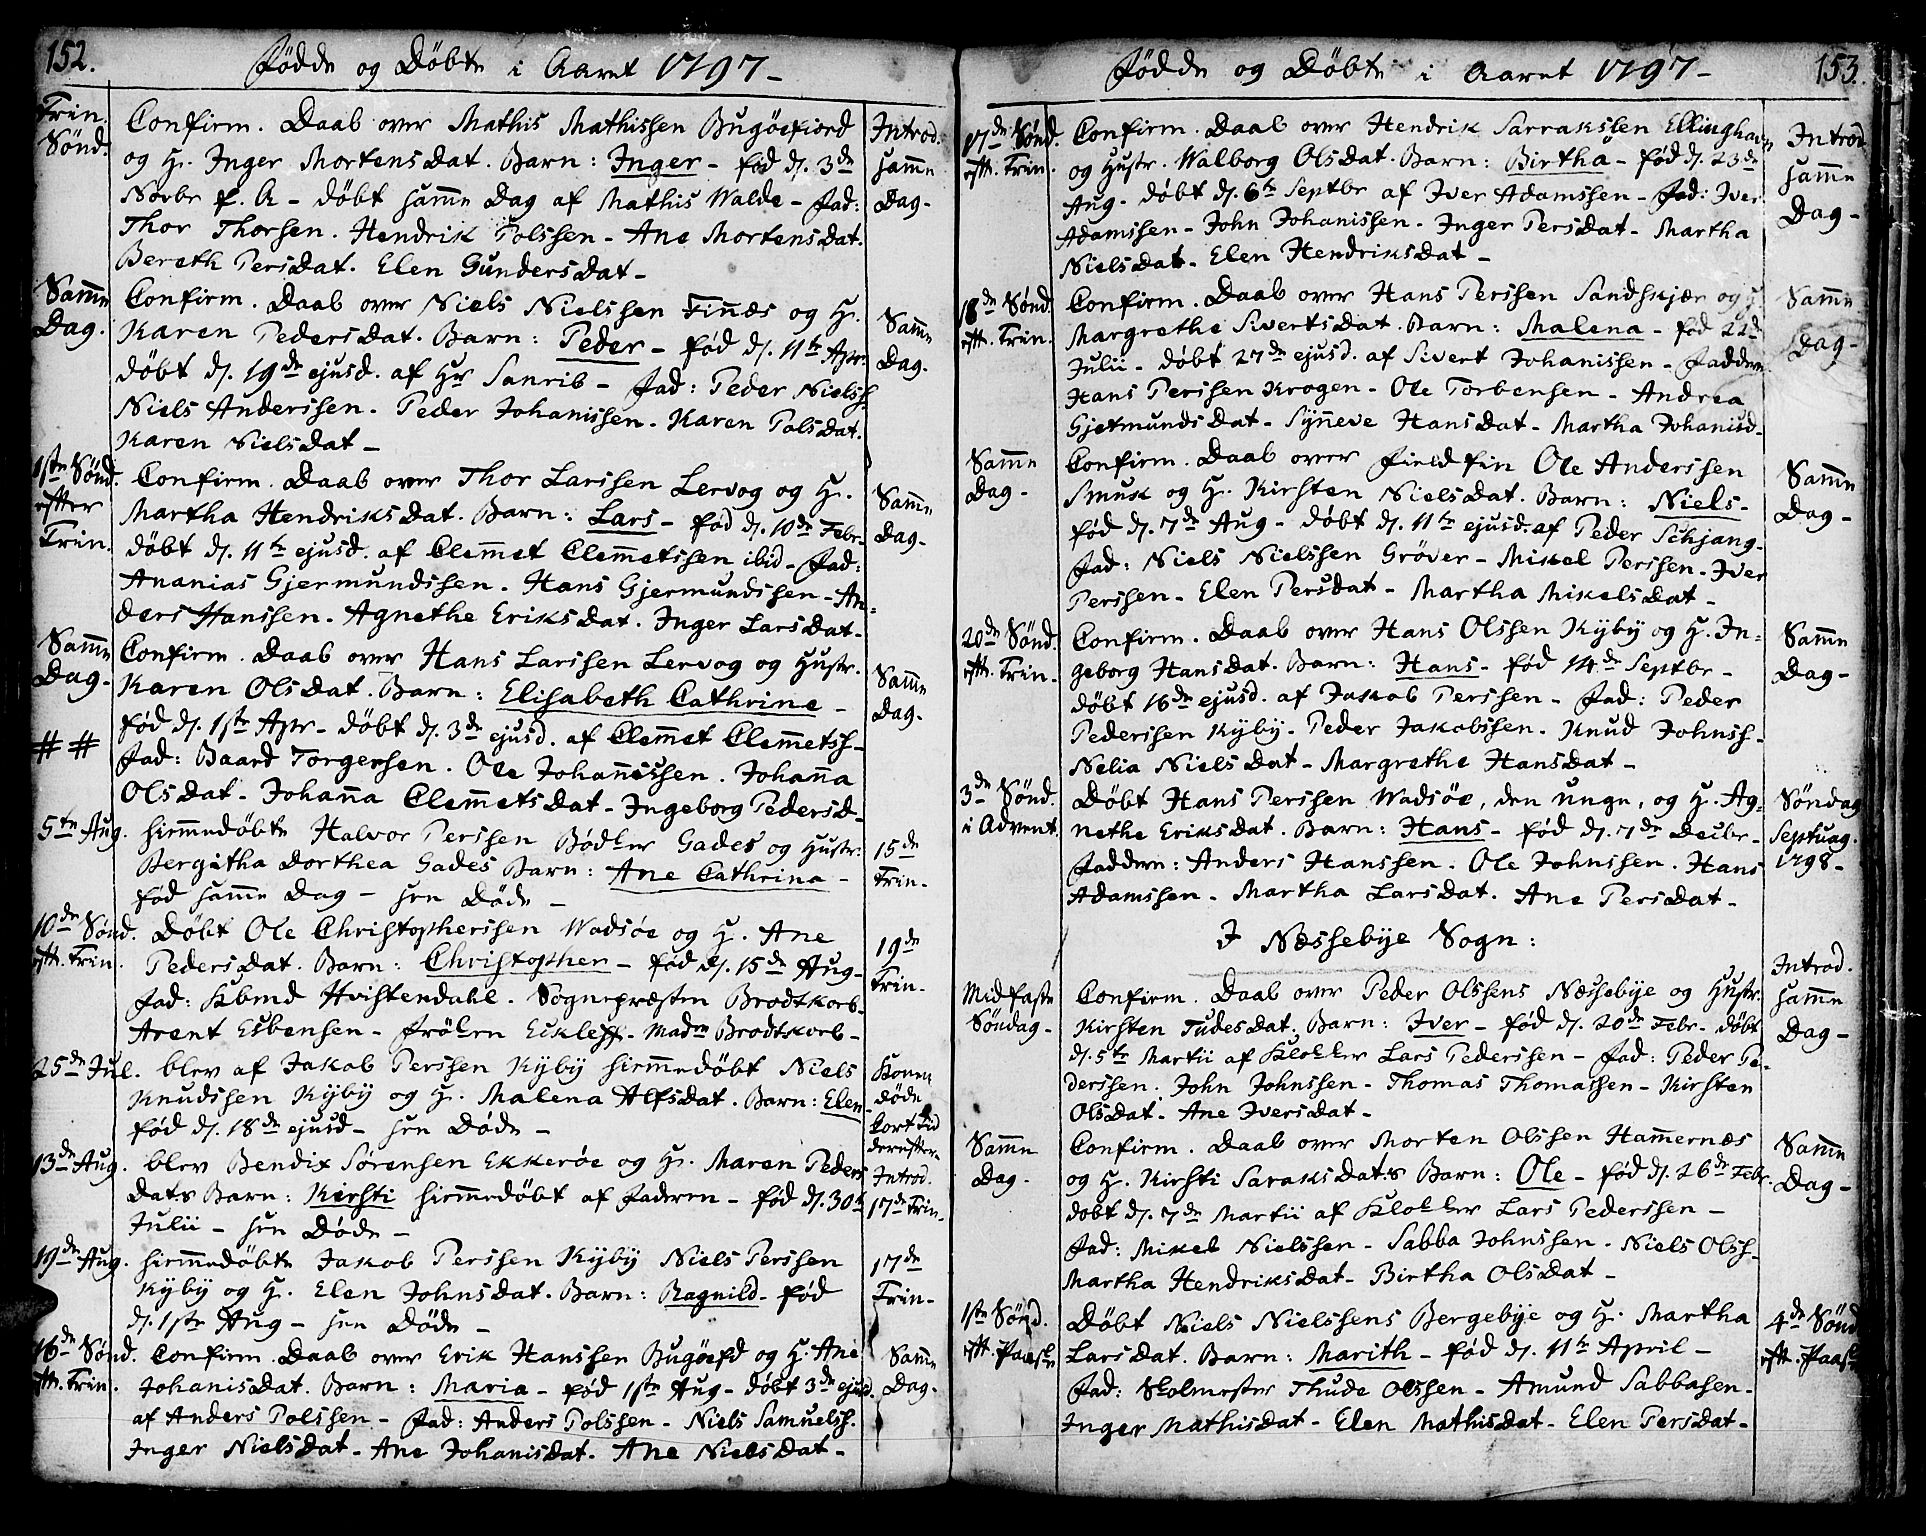 152.
Fødde og Døbte i Aaret 1797 -
Trin. Sønd.
Confirm. Daab over Mathis Mathissen Bugøefiord
og H. Inger MortensDat. Barn: Inger - fød d. 3de
Novbr f. A - døbt samme Dag af Mathis Walde - Fad:
Thor Thorsen. Hendrik Polssen - Ane MortensDat.
Bereth PersDat. Elen GundersDat -
Introd. samme Dag -
Samme Dag.
Confirm. Daab over Niels Nielssen Finnæs og H.
Karen PedersDat. Barn: Peder - fød d. 11te Apr.
døbt d. 19de ejusd. af Hr Sanrib - Fad: Peder Nielss.
Niels Anderssen. Peder Johanissen. Karen PolsDat.
Karen NielsDat -
Samme Dag.
1ste Sønd. efter Trin.
Confirm. Daab over Thor Larssen Lervog og H.
Martha HendriksDat. Barn: Lars - fød d. 10de Febr.
døbt d. 11te ejusd. af Clemmet Clemmetssen ibid - Fad:
Ananias Gjermundssen. Hans Gjermundssen - An=
ders Hanssen. Agnethe EriksDat. Inger LarsDat -
Samme Dag.
Samme Dag -
Confirm. Daab over Hans Larssen Lervog og Hustr.
Karen OlsDat. Barn: Elisabeth Cathrine -
fød d. 1ste Apr - døbt d. 3de ejusd. af Clemmet Clemmetss -
Fad: Baard Torgersen. Ole Johannessen. Johanna
OlsDat - Johanna ClemmetsDat - Ingeborg Pedersd -
Samme Dag.
# #
5te Aug.
hiemmedøbte Halvor Perssen Bødker Gades og Hustr:
Bergitha Dorthea Gades Barn: Ane Cathrina -
fød samme Dag - sen Døde -
15de Trin.
10de Sønd. eft. Trin.
Døbt Ole Christopherssen Wadsøe og H. Ane
PedersDat. Barn: Christopher - fød d. 15de Aug -
Fad: Kbmd Hvistendahl. Sognepræsten Brodtkorb -
Arent Esbensen - Frøken Eckleff - Madm Brodtkorb -
19de Trin -
25de Jul.
blev af Jakob Perssen Kyby hiemmedøbt Niels
Knudssen Kyby og H. Malena AlfsDat. Barn: Elen
fød d. 18de ejusd - sen Døde -
Konen døde kort Tid derefter -
13de Aug.
blev Bendix Sørensen Ekkerøe og H. Maren Peders
Dats Barn: Kirsti hiemmedøbt af Faderen - fød d. 30te
Julii - sen Døde -
Introd. 17de Trin -
19de Aug.
hiemmedøbte Jakob Perssen Kyby Niels Perssen
Kyby og H. Elen JohnsDat. Barn: Ragnild - fød
d. 1ste Aug - sen Døde -
17de Trin -
16de Sønd. eft. Trin.
Confirm. Daab over Erik Hanssen Bugøefd og H. Ane
JohanisDat. Barn: Maria - fød 1ste Aug - døbt 3de ejusd.
af Anders Polssen - Fad: Anders Polssen - Niels Samuelss.
Inger NielsDat - Ane JohanisDat. Ane NielsDat -
Samme Dag -
153.
Fødde og Døbte i Aaret 1797 -
17de Sønd. eft. Trin.
Confirm. Daab over Hendrik Sarrakssen Ellinghavn
og Hustr. Walborg OlsDat. Barn: Birtha - fød d. 23de
Aug - døbt d. 6te Septbr af Iver Adamssen - Fad: Iver
Adamssen - John Johanissen - Inger PersDat - Martha
NielsDat - Elen HendriksDat -
Introd. samme Dag -
18de Sønd. eft. Trin.
Confirm. Daab over Hans Perssen Sandskjær og H.
Margrethe SivertsDat. Barn: Malena - fød 22d
Julii - døbt 27de ejusd. af Sivert Johanissen - Faddere
Hans Perssen Krogen - Ole Torbensen - Andrea
GjetmundsDat - Synneve HansDat - Martha Johanisd -
Samme Dag -
Samme Dag -
Confirm. Daab over Fieldfin Ole Anderssen
Smuk og H. Kirsten NielsDat. Barn: Niels -
fød d. 7de Aug - døbt d. 11te ejusd. af Peder Schjang -
Fad: Niels Nielssen Grøver - Mikel Perssen - Iver
Perssen - Elen PersDat - Martha MikelsDat -
Samme Dag -
20de Sønd. eft. Trin -
Confirm. Daab over Hans Olssen Kyby og H. In=
geborg HansDat. Barn: Hans - fød 14de Septbr -
døbt 16de ejusd. af Jakob Perssen - Fad: Peder
Pederssen Kyby - Peder Jakobssen - Knud Johnss -
Nelia NielsDat - Margrethe HansDat -
Samme Dag -
3de Sønd. i Advent.
Døbt Hans Perssen Wadsøe, den unge, og H. Ag=
nethe EriksDat. Barn: Hans - fød d. 7de Decbr -
Faddere: Anders Hanssen. Ole Johnssen. Hans
Adamssen - Martha LarsDat. Ane PersDat -
Søndag Septuag. 1798 -
I Nessebye Sogn:
Midfaste Søndag -
Confirm. Daab over Peder Olssens Nessebye og Hustr.
Kirsten TudesDat. Barn: Iver - fød d. 20de Febr - døbt
d. 5te Martii af Klokker Lars Pederssen - Fad: Peder Pe=
derssen. John Johnssen - Thomas Thomassen - Kirsten
OlsDat - Ane IversDat -
Introd. samme Dag -
Samme Dag -
Confirm. Daab over Morten Olssen Hammernæs
og H. Kirsti SaraksDats Barn: Ole - fød d. 26de Febr.
døbt d. 7de Martii af Klokker Lars Pederssen -
Fad: Mikel Nielssen - Sabba Johnssen - Niels Olss -
Martha HendriksDat - Birtha OlsDat -
Samme Dag -
1ste Sønd. eft. Paaske
Døbt Niels Nielssens Bergebye og H. Martha
LarsDat. Barn: Marith - fød d. 11te April -
Fad: Skolmester Thude Olssen - Amund Sabbasen -
Inger MathisDat - Elen MathisDat - Elen PersDat -
4de Sønd. eft. Paaske